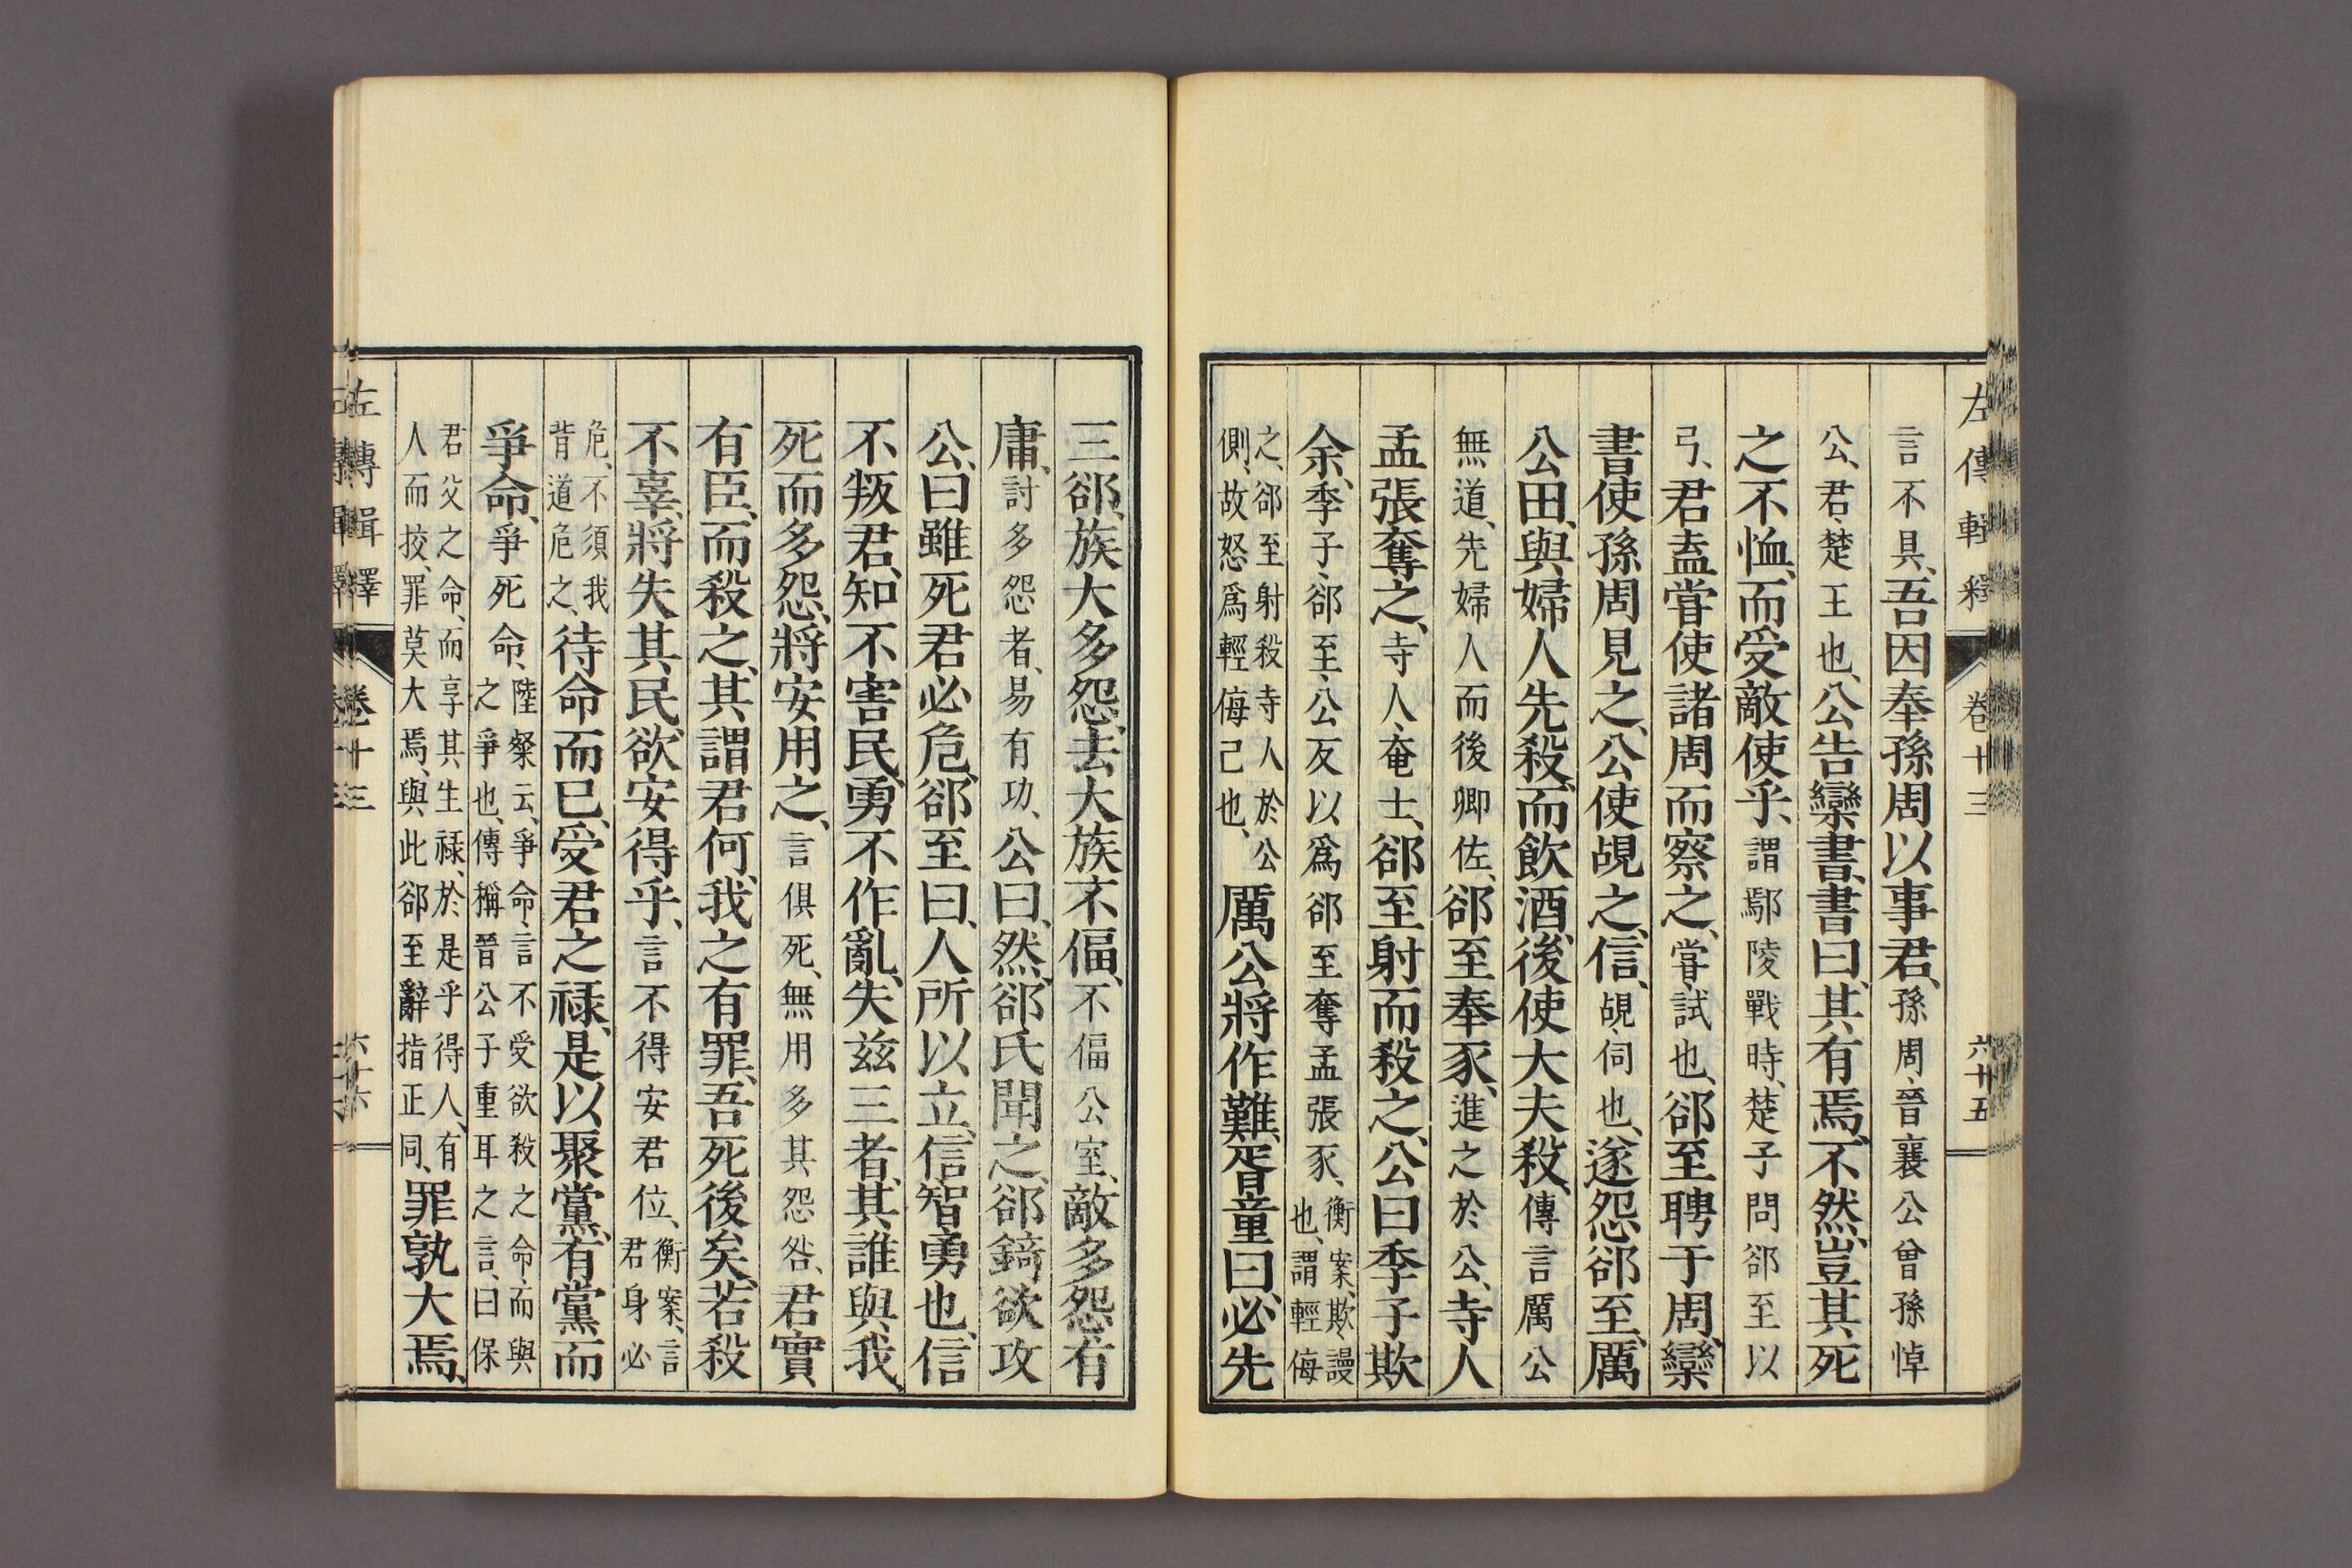 左傳輯釋 卷十三 六十五
言不具、吾因奉孫周以事君、孫周、晉襄公曾孫悼
公、君、楚王也、公告欒書、書曰、其有焉、不然、豈其死
之不恤、而受敵使乎、謂鄢陵戰時、楚子問郤至以
弓、君盍嘗使諸周而察之、嘗、試也、郤至聘于周、欒
書使孫周見之、公使覘之、信、覘、伺也、遂怨郤至、厲
公田、與婦人先殺、而飲酒、後使大夫殺、傳言厲公
無道、先婦人而後卿佐、郤至奉豕、進之於公、寺人
孟張奪之、寺人、奄士、郤至射而殺之、公曰、季子欺
余、季子、郤至、公反以爲郤至奪孟張豕、衡案、欺、謾也、謂輕侮
之、郤至射殺寺人於公側、故怒爲輕侮己也、厲公將作難、胥童曰、必先
三郤、族大多怨、去大族不偪、不偪公室、敵多怨有
庸、討多怨者、易有功、公曰、然、郤氏聞之、郤錡欲攻
公、曰雖死君必危、郤至曰、人所以立、信智勇也、信
不叛君、知不害民、勇不作亂、失茲三者、其誰與我、
死而多怨、將安用之、言俱死、無用多其怨咎、君實
有臣、而殺之、其謂君何、我之有罪、吾死後矣、若殺
不辜、將失其民、欲安得乎、言不得安君位、衡案、言君身必
危、不須我背道危之、待命而已、受君之祿、是以聚黨、有黨而
爭命、爭死命、陸粲云、爭命、言不受欲殺之命、而與之爭也、傳稱晉公子重耳之言、曰保
君父之命、而享其生祿、於是乎得人、有人而挍、罪莫大焉、與此郤至辭指正同、罪孰大焉、
左傳輯釋 卷十三 六十六